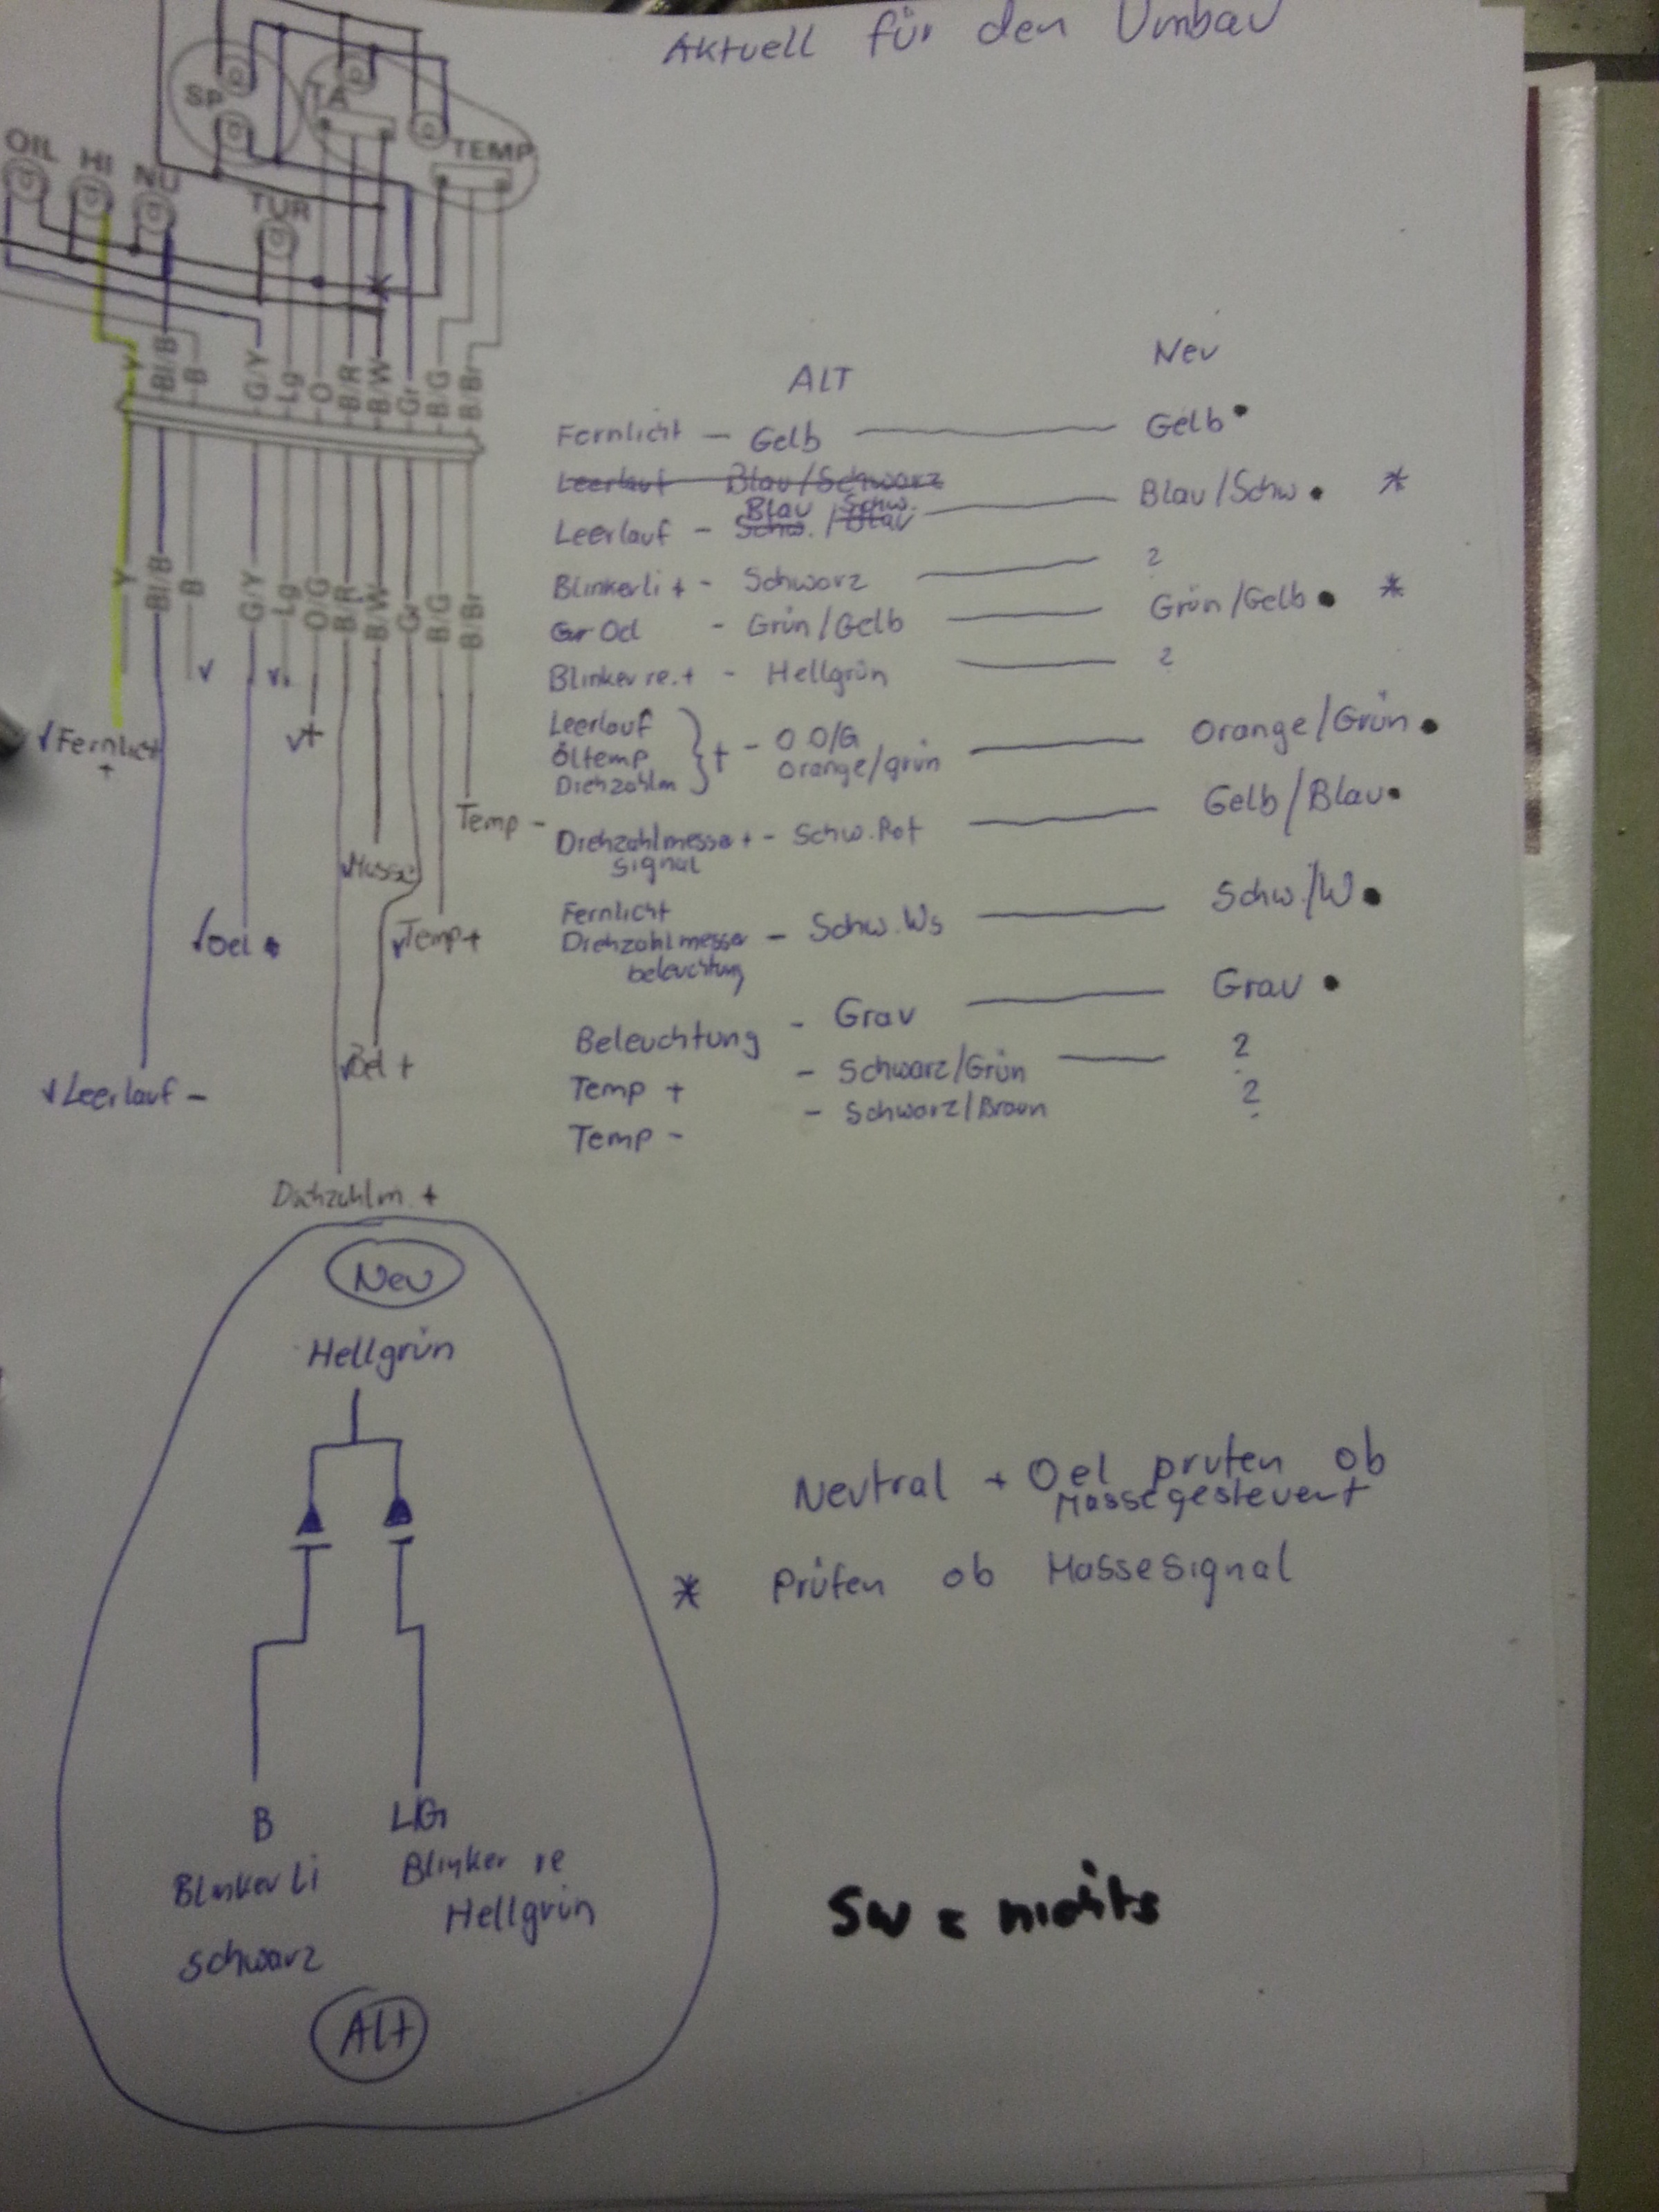 Aktuell für den Umbau
SP
TA
TEMP
OIL
HI
NU
TUR
Y
Bl/B
B
G/Y
Lg
O
B/R
B/W
Gr
B/G
B/Br
Y
Bl/B
B
G/Y
Lg
O/G
B/R
B/W
Gr
B/G
B/Br
Fernlicht
+
+
Temp -
Masse
Oel
Temp +
Bel +
Leerlauf -
Drehzahlm. +
ALT Neu
Fernlicht - Gelb Gelb
Leerlauf Blau/Schwarz
Blau Schw.
Leerlauf - Schw. / Blau Blau/Schw. *
Blinker li + - Schwarz ?
Gr Oel - Grün/Gelb Grün/Gelb *
Blinker re. + - Hellgrün ?
Leerlauf
Öltemp
Drehzahlm
+ - O O/G
Orange/grün Orange/Grün
Drehzahlmesser + - Schw. Rot Gelb/Blau
signal
Fernlicht
Drehzahlmesser - Schw. Ws Schw./W
beleuchtung
Beleuchtung - Grau Grau
Temp + - Schwarz/Grün ?
Temp - - Schwarz/Braun ?
Neu
Hellgrün
B LIG
Blinker li Blinker re
schwarz Hellgrün
Alt
Neutral + Oel prüfen ob
Massegesteuert
* Prüfen ob Massesignal
SW = nichts